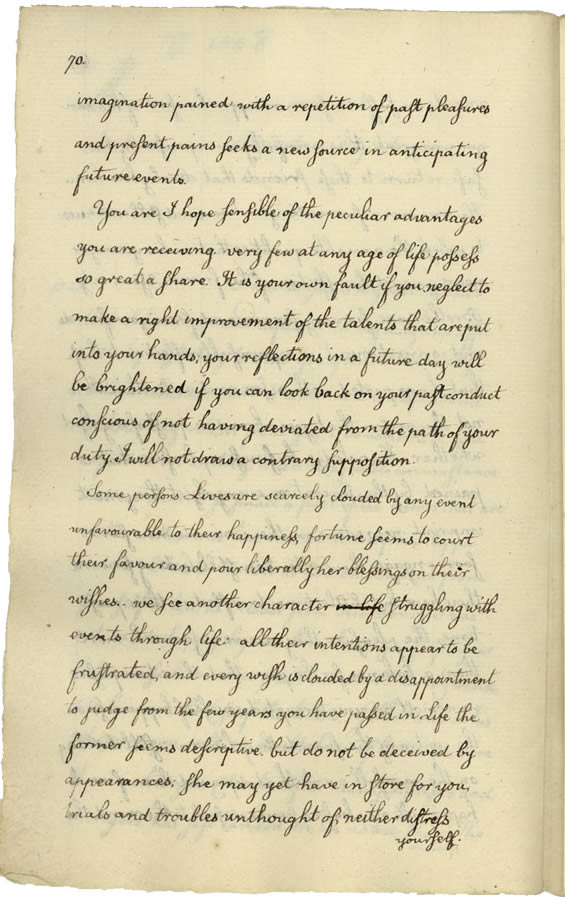 70.
imagination pained with a repetition of paſt pleaſures
and preſent pains ſeeks a new ſource in anticipating
future events.
You are I hope ſenſible of the peculiar advantages
you are receiving. very few at any age of life poſseſs
so great a ſhare. It is your own fault if you neglect to
make a right improvement of the talents that are put
into your hands, your reflections in a future day will
be brightened if you can look back on your paſt conduct
conſcious of not having deviated from the path of your
duty. I will not draw a contrary ſuppoſition.
Some perſons Lives are scarcely clouded by any event
unfavourable to their happineſs, fortune ſeems to court
their favour and pour liberally her bleſsings on their
wiſhes.. we ſee another character in life ſtruggling with
events through life: all their intentions appear to be
fruſtrated, and every wiſh is clouded by a disappointment
to judge from the few years you have paſsed in Life the
former ſeems deſcriptive. but do not be deceived by
appearances; ſhe may yet have in ſtore for you,
trials and troubles unthought of; neither diſtreſs
yourſelf.